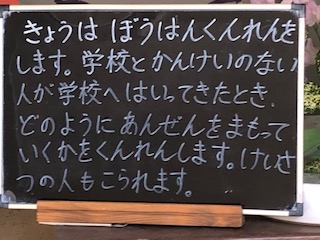 きょうは ぼうはんくんれんを
します。学校とかんけいのない
人が学校へはいってきたとき、
どのようにあんぜんをまもって
いくかをくんれんします。けいさ
つの人もこられます。